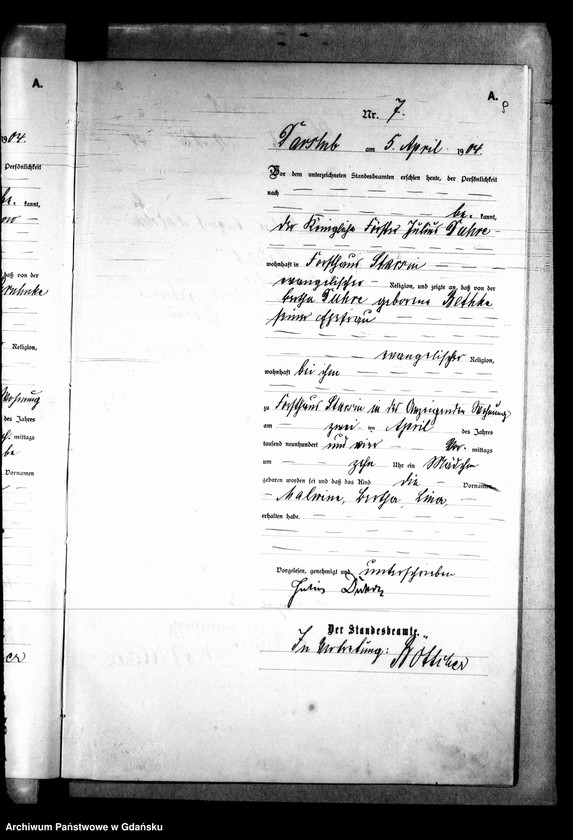 A.
A.
9
1904.
Nr. 7.
Darslub am 5. April 1904.
Persönlichkeit
Vor dem unterzeichneten Standesbeamten erschien heute, der Persönlichkeit
nach
be. kannt,
be. kannt,
der Königliche Förster Julius Duhre
wohnhaft in Forsthaus Starrin
evangelischer Religion, und zeigte an, daß von der
daß von der
Bertha Duhre geborene Bethke
seiner Ehefrau
Religion,
evangelischer Religion,
wohnhaft bei ihm
Wohnung
zu Forsthaus Starrin in der Anzeigenden Wohnung
des Jahres
am zwei ten April des Jahres
mittags
tausend neunhundert und vier Vor mittags
um zehn Uhr ein Mädchen
Vornamen
geboren worden sei und daß das Kind die Vornamen
Malwine, Bertha, Lina
erhalten habe.
Vorgelesen, genehmigt und unterschrieben
Julius
Der Standesbeamte.
In Vertretung: Böttcher
Archiwum Państwowe w Gdańsku